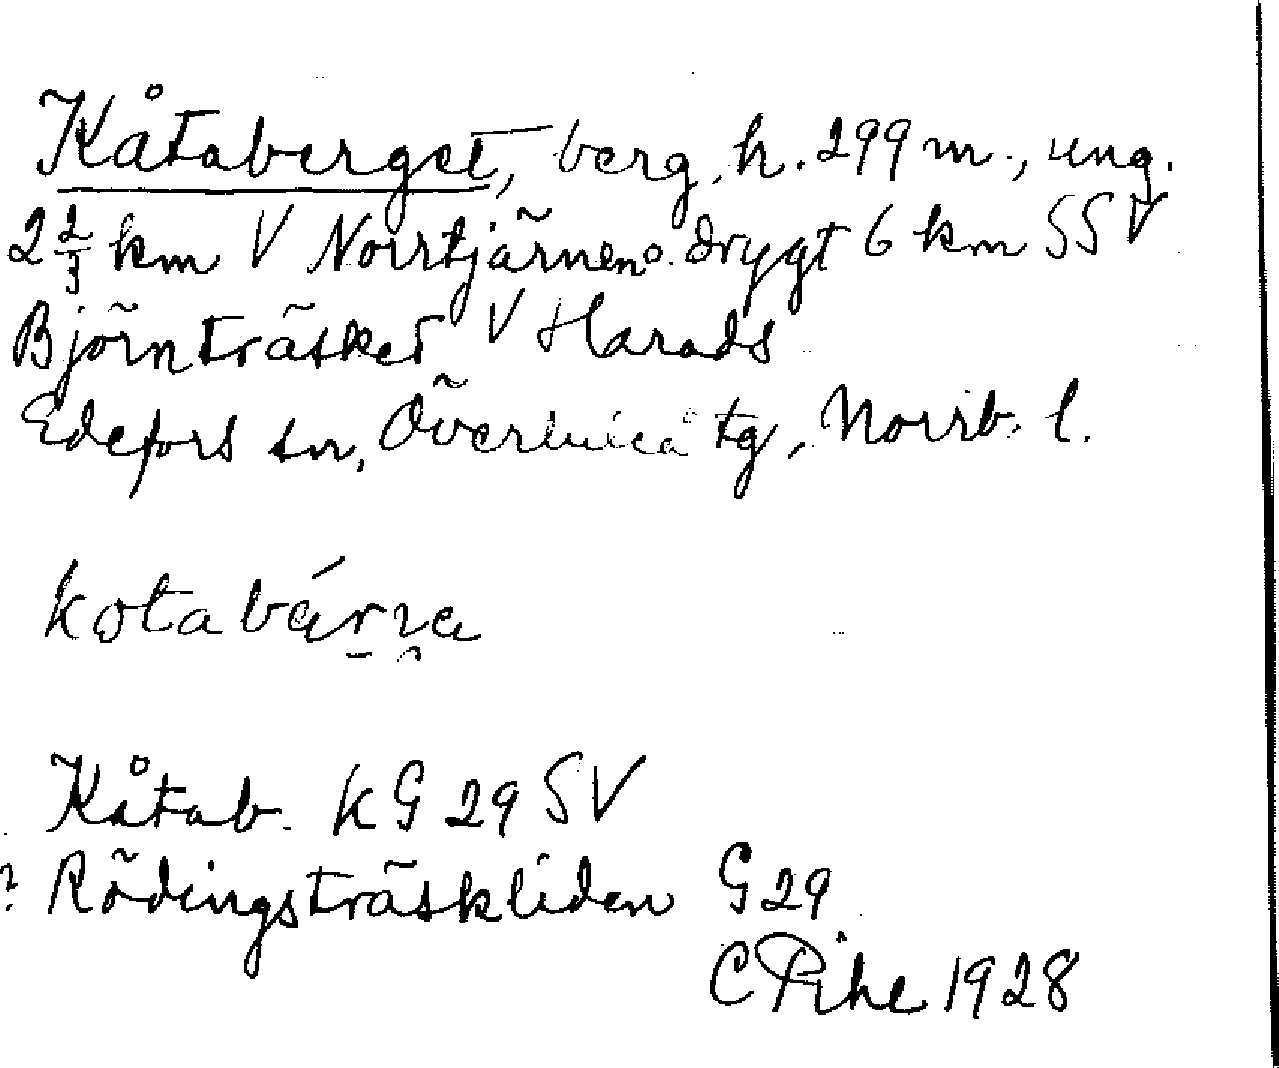 Kåtaberget, berg, h. 299 m., ung.
2 2/3 km V Norrtjärnen o. drygt 6 km SSV
Björnträsket V Harads
Edefors sn, Överluleå tg, Norrb. l.
kotabárra
Kåtab. KG 29 SV
? Rödingsträskliden G 29
C Pihl 1928